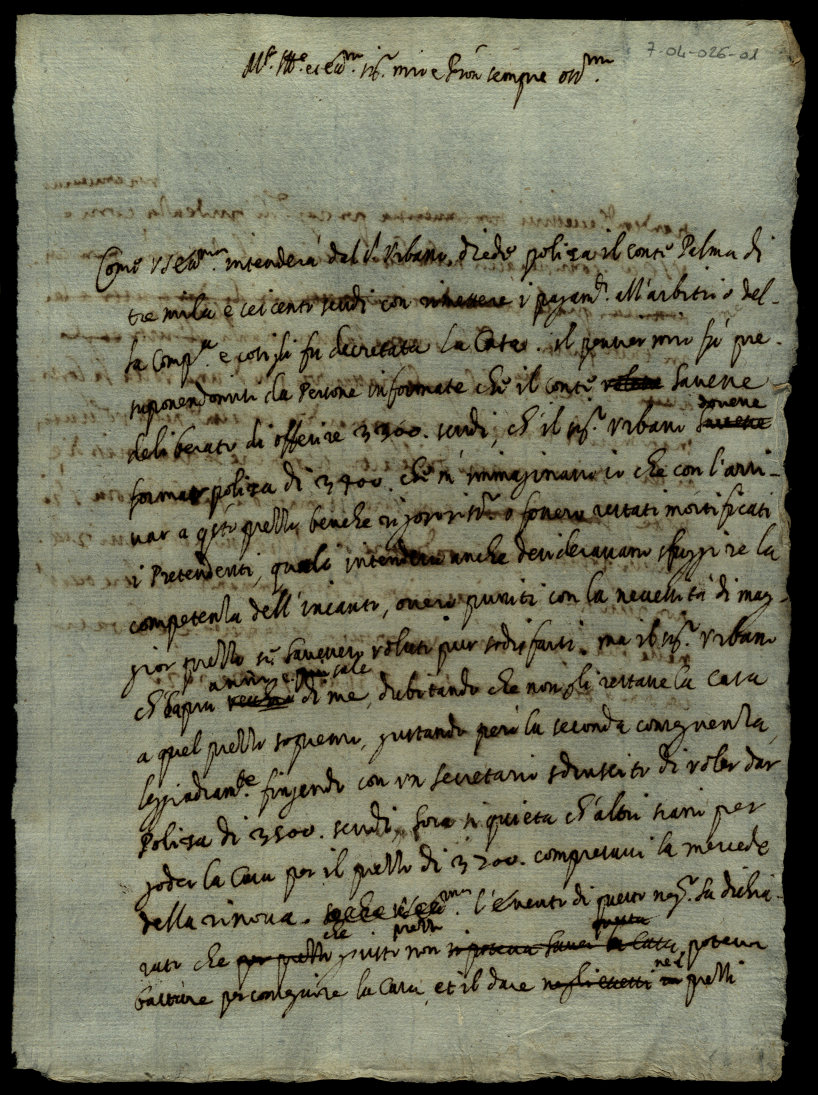 7-04-026-01
Come V S Ecc.ma intenderà dal S.r Urbano, diede poliza il Conte Palma di
tre mila e seicento scudi con rimettere i pagam.ti all'arbitrio del-
la Comp.a e così gli fu decretata la Casa. il pensier mio fu pre-
supponendomi da Persone informate che il Conte havesse
deliberato di offerire 3300. scudi, ch'il sig.r Urbano dovesse
formar poliza di 3400. che m'immaginavo io che con l'arri-
var a q.sto prezzo, benche rigoroso o fossero restati mortificati
i Pretendenti, quali intendevo anche desideravano sfuggire la
competenza dell'incanto, overo puniti con la necessità di mag-
gior prezzo se havessero voluto pur sodisfarsi. ma il sig.r Urbano
di me, dubitando che non gli restasse la Casa
a quel prezzo supremo, gustando però la seconda conseguenza,
leggiadram.te fingendo con un secretario di voler dar
Poliza di 3500. scudi, hora si quieta ch'altri siano per
goder la Casa per il prezzo di 3200. compresavi la mercede
della rinova. l'evento di questo neg.o ha dichia-
rato che giusto prezzo non poteva
bastare per conseguire la Casa, et il dare nel prezzi